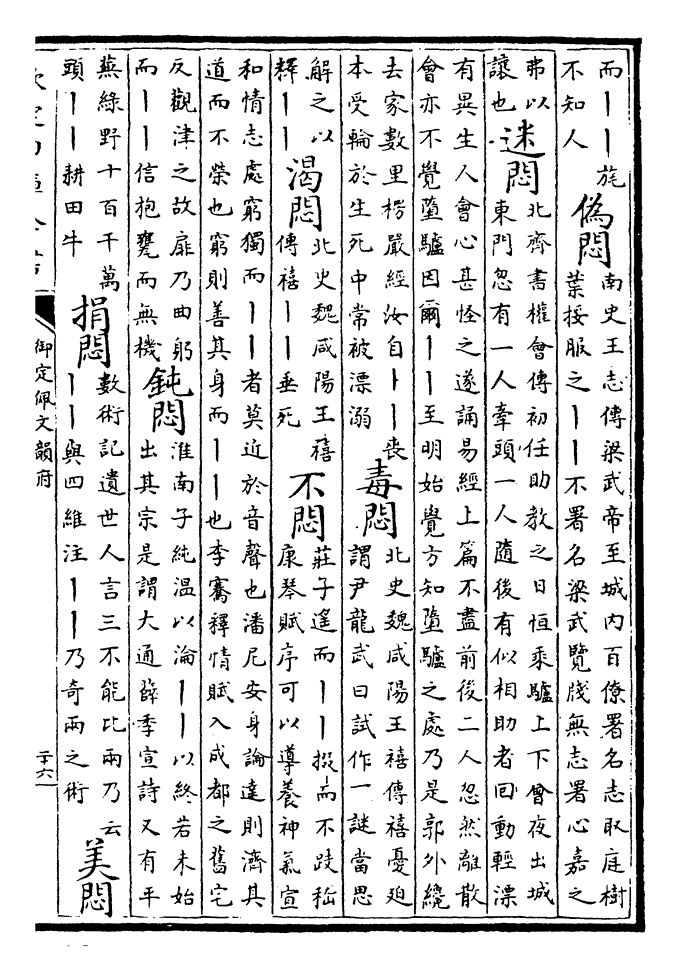 而丨丨旄
不知人
偽悶
南史王志傳梁武帝至城内百僚署名志取庭樹
葉挼服之丨丨不署名梁武覽牋無志署心嘉之
弗以
讓也
迷悶
北齊書權會傳初任助教之日恒乘驢上下會夜出城
東門忽有一人牽頭一人隨後有似相助者回動輕漂
有異生人會心甚怪之遂誦易經上篇不盡前後二人忽然離散
會亦不覺墮驢因爾丨丨至明始覺方知墮驢之處乃是郭外繞
去家數里楞嚴經汝自丨丨喪
本受輪於生死中常被漂溺
毒悶
北史魏咸陽王禧傳禧憂廹
謂尹龍武曰試作一謎當思
解之以
釋丨丨
渴悶
北史魏咸陽王禧
傳禧丨丨垂死
不悶
莊子遙而丨丨掇而不跂嵇
康琴賦序可以導養神氣宣
和情志處窮獨而丨丨者莫近於音聲也潘尼安身論達則濟其
道而不榮也窮則善其身而丨丨也李騫釋情賦入成都之舊宅
反觀津之故扉乃曲躬
而丨丨信抱甕而無機
鈍悶
淮南子純温以淪丨丨以終若未始
出其宗是謂大通薛季宣詩又有平
蕪綠野十百千萬
頭丨丨耕田牛
捐悶
數術記遺世人言三不能比兩乃云
丨丨與四維注丨丨乃奇兩之術
美悶
欽定四庫全書
御定佩文韻府
二十六